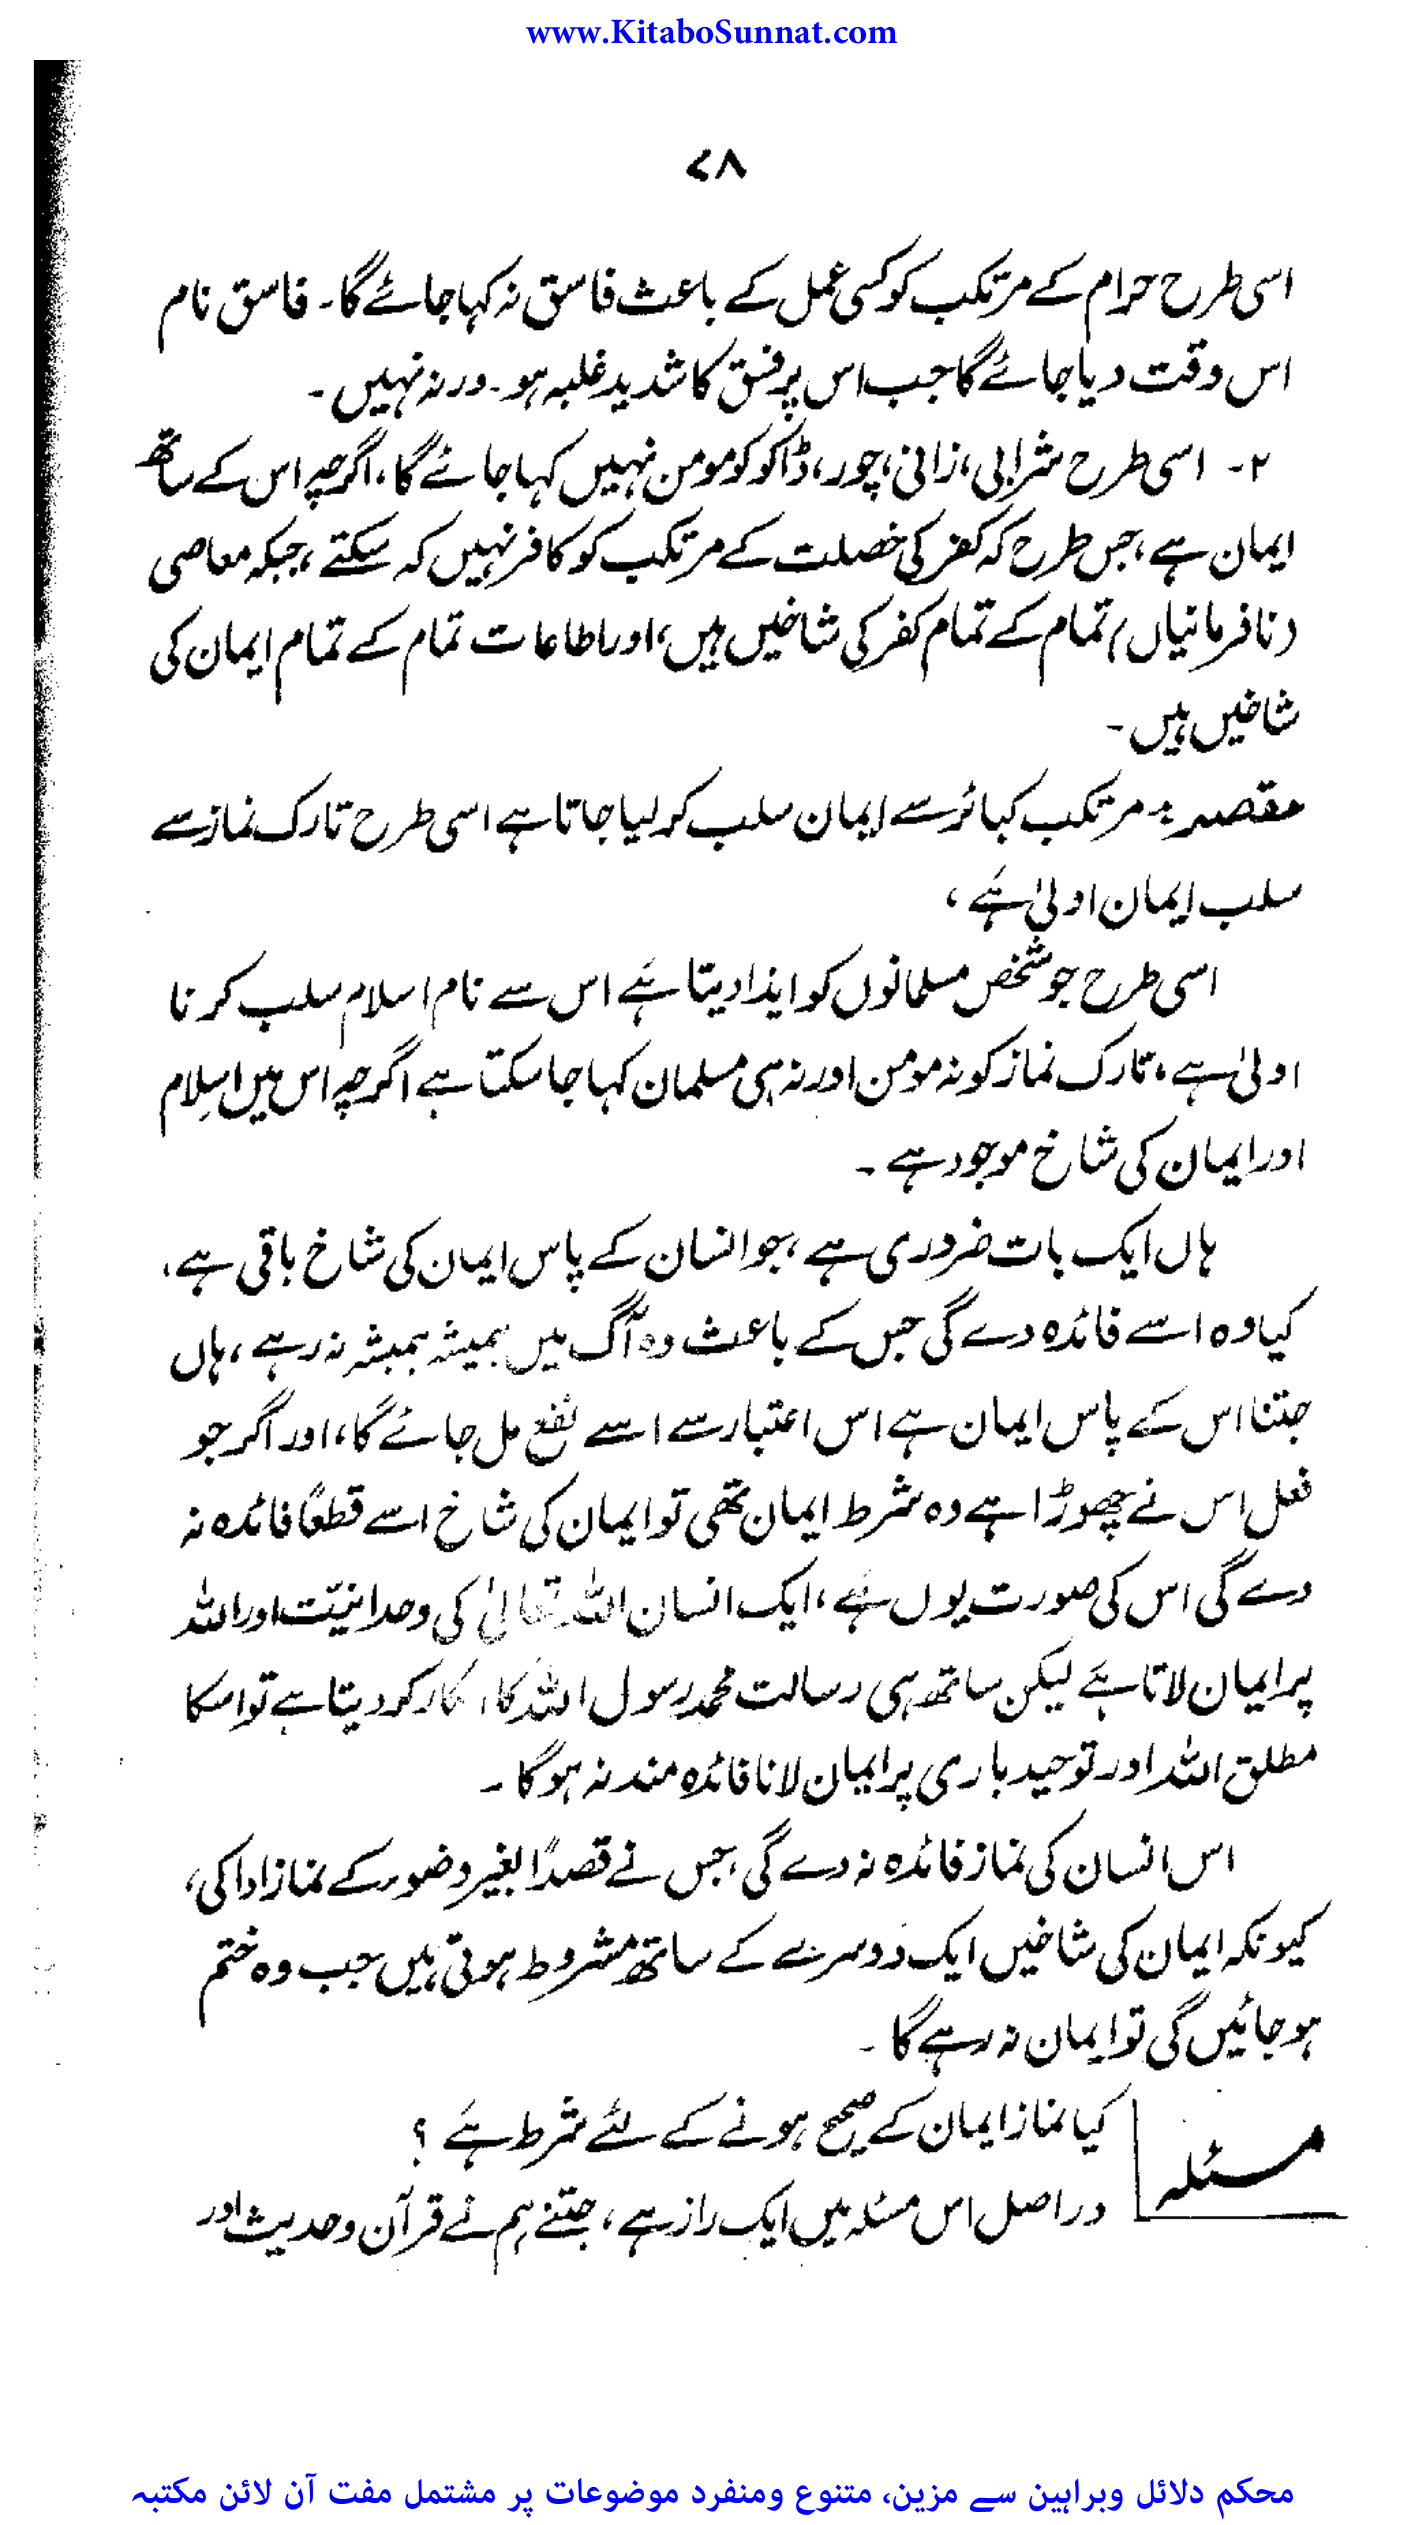 www.KitaboSunnat.com
۷۸
اسی طرح حرام کے مرتکب کو کسی عمل کے باعث فاسق نہ کہا جائے گا۔ فاسق نام
اس وقت دیا جائے گا جب اس پر فسق کا شدید غلبہ ہو۔ ورنہ نہیں۔
۲۔ اسی طرح شرابی، زانی، چور، ڈاکو کو مومن نہیں کہا جائے گا، اگرچہ اس کے ساتھ
ایمان ہے، جس طرح کہ کفر کی خصلت کے مرتکب کو کافر نہیں کہ سکتے، جبکہ معاصی
(نافرمانیاں) تمام کے تمام کفر کی شاخیں ہیں، اور اطاعات تمام کے تمام ایمان کی
شاخیں ہیں۔
مقصد:۔ مرتکب کبائر سے ایمان سلب کر لیا جاتا ہے اسی طرح تارک نماز سے
سلب ایمان اولیٰ ہے،
اسی طرح جو شخص مسلمانوں کو ایذا دیتا ہے اس سے نام اسلام سلب کرنا
اولیٰ ہے، تارک نماز کو نہ مومن اور نہ ہی مسلمان کہا جا سکتا ہے اگرچہ اس میں اسلام
اور ایمان کی شاخ موجود ہے۔
ہاں ایک بات ضروری ہے، جو انسان کے پاس ایمان کی شاخ باقی ہے،
کیا وہ اسے فائدہ دے گی جس کے باعث وہ آگ میں ہمیشہ ہمیشہ نہ رہے، ہاں
جتنا اس کے پاس ایمان ہے اس اعتبار سے اسے نفع مل جائے گا، اور اگر جو
فعل اس نے چھوڑا ہے وہ شرط ایمان تھی تو ایمان کی شاخ اسے قطعاً فائدہ نہ
دے گی اس کی صورت یوں ہے، ایک انسان اللہ تعالیٰ کی وحدانیّت اور اللہ
پر ایمان لاتا ہے لیکن ساتھ ہی رسالت محمد رسول اللہ کا انکار کر دیتا ہے تو اسکا
مطلق اللہ اور توحید باری پر ایمان لانا فائدہ مند نہ ہوگا۔
اس انسان کی نماز فائدہ نہ دے گی، جس نے قصداً بغیر وضوء کے نماز ادا کی،
کیونکہ ایمان کی شاخیں ایک دوسرے کے ساتھ مشروط ہوتی ہیں جب وہ ختم
ہو جائیں گی تو ایمان نہ رہے گا۔
مسئلہ
کیا نماز ایمان کے صحیح ہونے کے لئے شرط ہے؟
دراصل اس مسئلہ میں ایک راز ہے، جتنے ہم نے قرآن و حدیث اور
محکم دلائل وبراہین سے مزین، متنوع ومنفرد موضوعات پر مشتمل مفت آن لائن مکتبہ